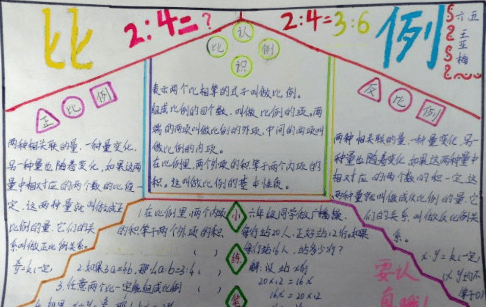 比
2:4=?
2:4=3:6
例
六五
王亚梅
认
比 例
积
正 比 例
反 比 例
表示两个比相等的式子叫做比例。
组成比例的四个数,叫做比例的项,两
端的两项叫做比例的外项,中间的两项叫
做比例的内项。
在比例里,两个外项的积等于两个内项的
积。这叫做比例的基本性质。
两种相关联的量,一种量变化,
另一种量也随着变化,如果这两种
量中相对应的两个数的比值一
定,这两种量就叫做成正
比例的量,它们的关
系叫做正比例关系。
y/x=k(一定)
两种相关联的量,一种量变化,
另一种量也随着变化,如果这两种量中
相对应的两个数的积一定,这
两种量就叫做成反比例的量,它
们的关系叫做反比例关
系。
x·y=k(一定)
1.在比例里,两个内项
的积等于两个外项的积。
( )
2.如果3a=6b,那么a:b=3:6 ( )
3.任意两个比一定能组成比例
小
练
六年级同学做广播操,
每行站20人,正好站12行,如果
每行站16人,站多少行?
解:设站x行
20×12=16x
16x=20×12
要认
真